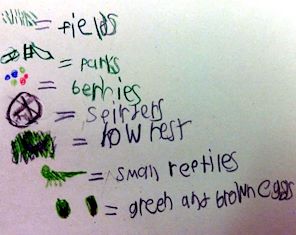 = fields
= parks
= berries
= spirters
= low rest
= small reetiles
= green and brown eggs